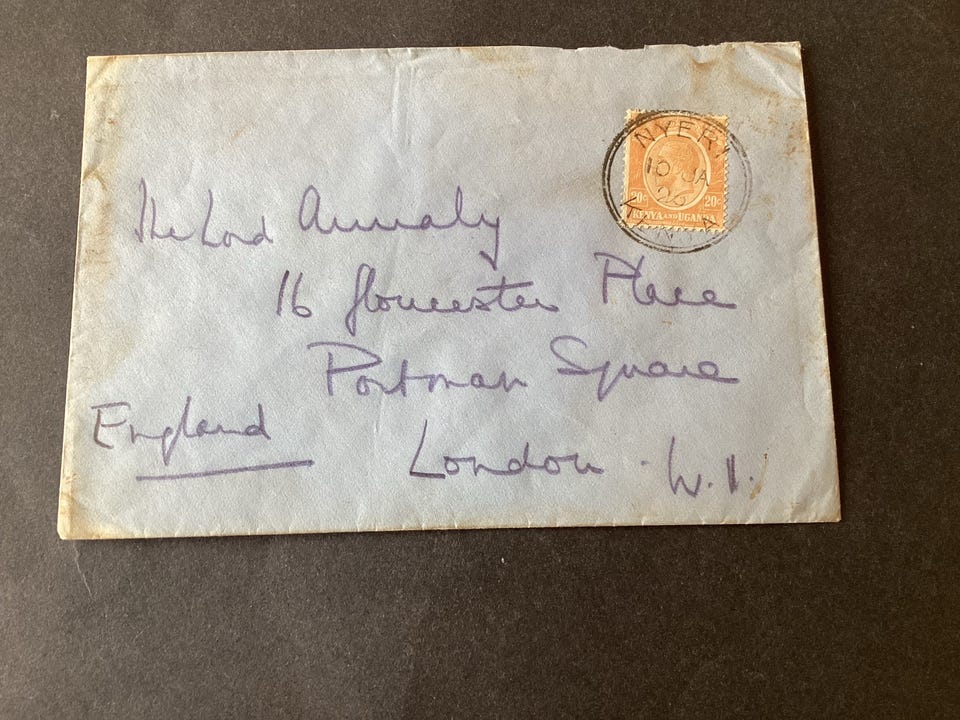 NYERI
10 JA
26
KENYA
20c 20c
KENYA AND UGANDA
The Lord Annaly
16 Gloucester Place
Portman Square
London . W.1.
England